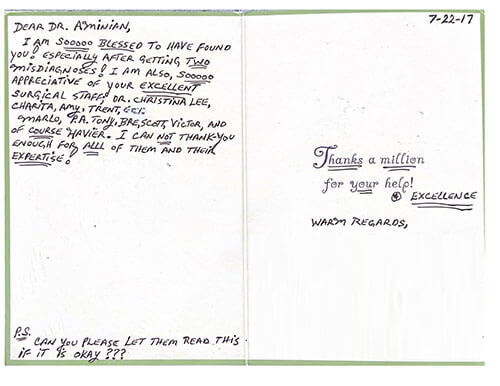 DEAR DR. AMINIAN,
I AM SOOOOO BLESSED TO HAVE FOUND
YOU! ESPECIALLY AFTER GETTING TWO
MISDIAGNOSES! I AM ALSO, SOOOOO
APPRECIATIVE OF YOUR EXCELLENT
SURGICAL STAFF; DR. CHRISTINA LEE,
CHARITA, AMY, TRENT, ECT.
MARLO, P.A. TONY, BRE, SCOTT, VICTOR, AND
OF COURSE HAVIER. I CAN NOT THANK-YOU
ENOUGH FOR ALL OF THEM AND THEIR
EXPERTISE!
P.S.
CAN YOU PLEASE LET THEM READ THIS
IF IT IS OKAY???
7-22-17
Thanks a million
for your help!
EXCELLENCE
WARM REGARDS,